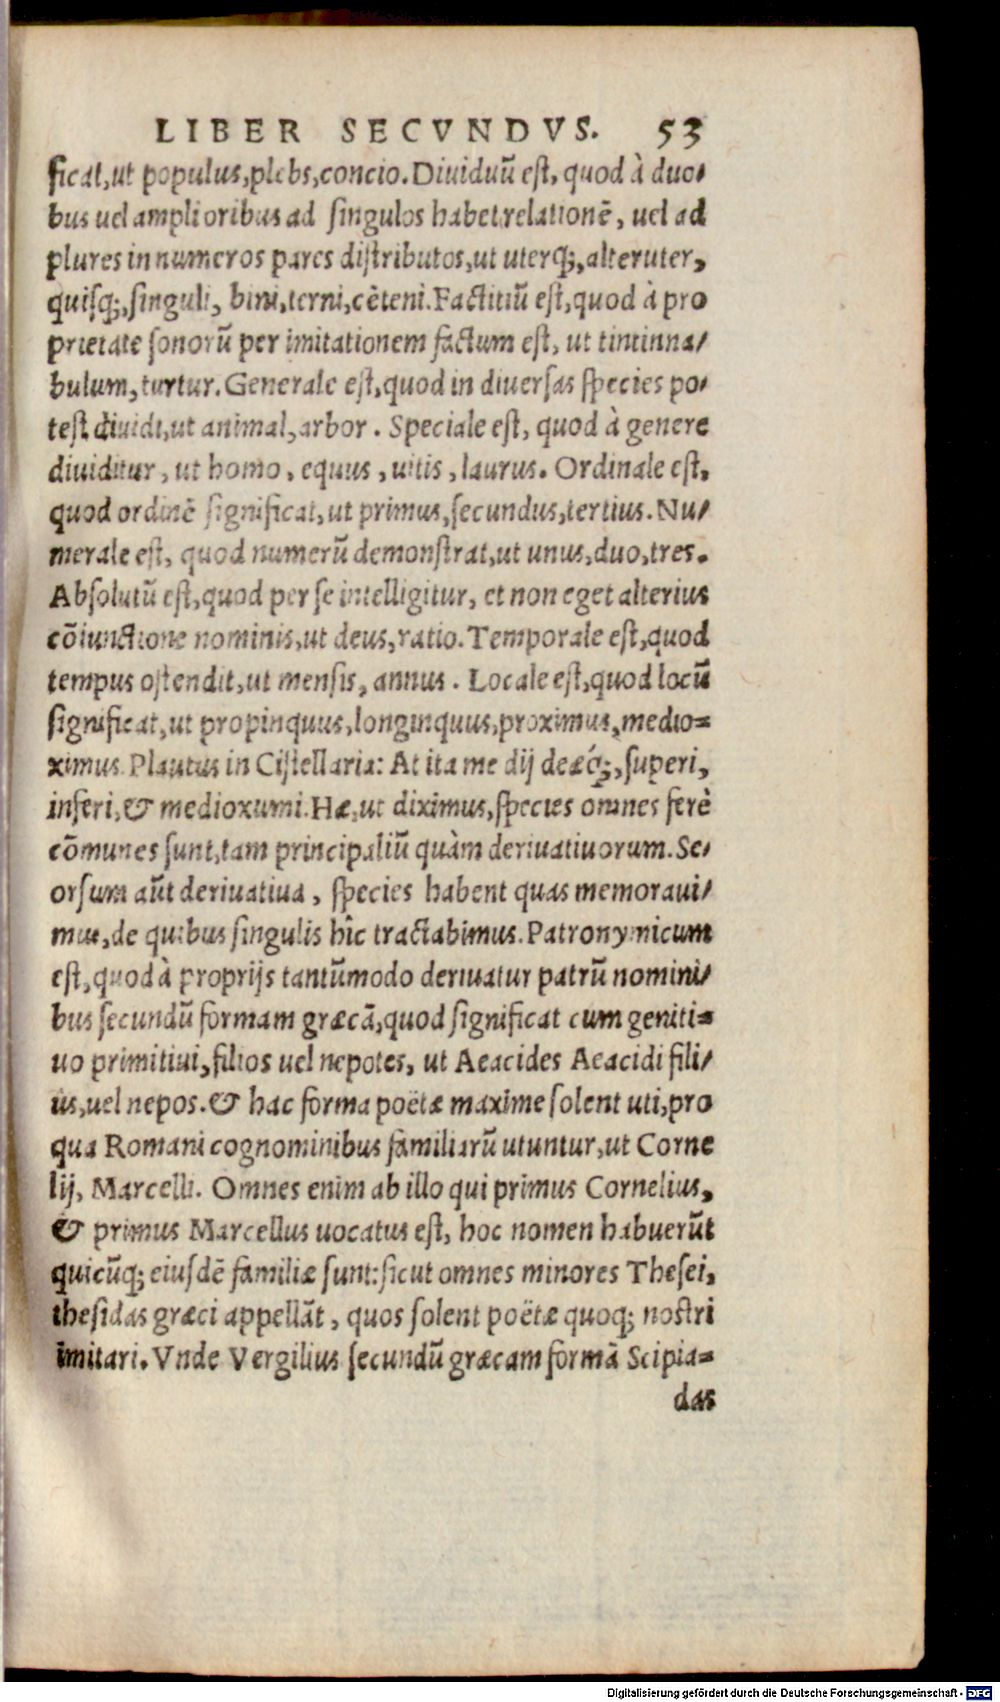 LIBER SECVNDVS. 53
ficat, ut populus, plebs, concio. Diuiduũ est, quod à duo-
bus uel amplioribus ad singulos habet relationẽ, uel ad
plures in numeros pares distributos, ut uterq;, alteruter,
quisq;, singuli, bini, terni, cẽteni. Factitiũ est, quod à pro
prietate sonorũ per imitationem factum est, ut tintinna-
bulum, turtur. Generale est, quod in diuersas species po-
test diuidi, ut animal, arbor. Speciale est, quod à genere
diuiditur, ut homo, equus, uitis, laurus. Ordinale est,
quod ordinẽ significat, ut primus, secundus, tertius. Nu-
merale est, quod numerũ demonstrat, ut unus, duo, tres.
Absolutũ est, quod per se intelligitur, et non eget alterius
cõiunctione nominis, ut deus, ratio. Temporale est, quod
tempus ostendit, ut mensis, annus. Locale est, quod locũ
significat, ut propinquus, longinquus, proximus, medio=
ximus. Plautus in Cistellaria: At ita me dij deæq́;, superi,
inferi, & medioxumi. Hæ, ut diximus, species omnes ferè
cõmunes sunt, tam principaliũ quàm deriuatiuorum. Se-
orsum aũt deriuatiua, species habent quas memoraui-
mus, de quibus singulis hîc tractabimus. Patronymicum
est, quod à proprijs tantũmodo deriuatur patrũ nomini-
bus secundũ formam græcã, quod significat cum geniti=
uo primitiui, filios uel nepotes, ut Aeacides Aeacidi fili-
us, uel nepos. & hac forma poëtæ maxime solent uti, pro
qua Romani cognominibus familiarũ utuntur, ut Corne
lij, Marcelli. Omnes enim ab illo qui primus Cornelius,
& primus Marcellus uocatus est, hoc nomen habuerũt
quicũq; eiusdẽ familiæ sunt: sicut omnes minores Thesei,
thesidas græci appellãt, quos solent poëtæ quoq; nostri
imitari. Vnde Vergilius secundũ græcam formã Scipia=
das
Digitalisierung gefördert durch die Deutsche Forschungsgemeinschaft - DFG